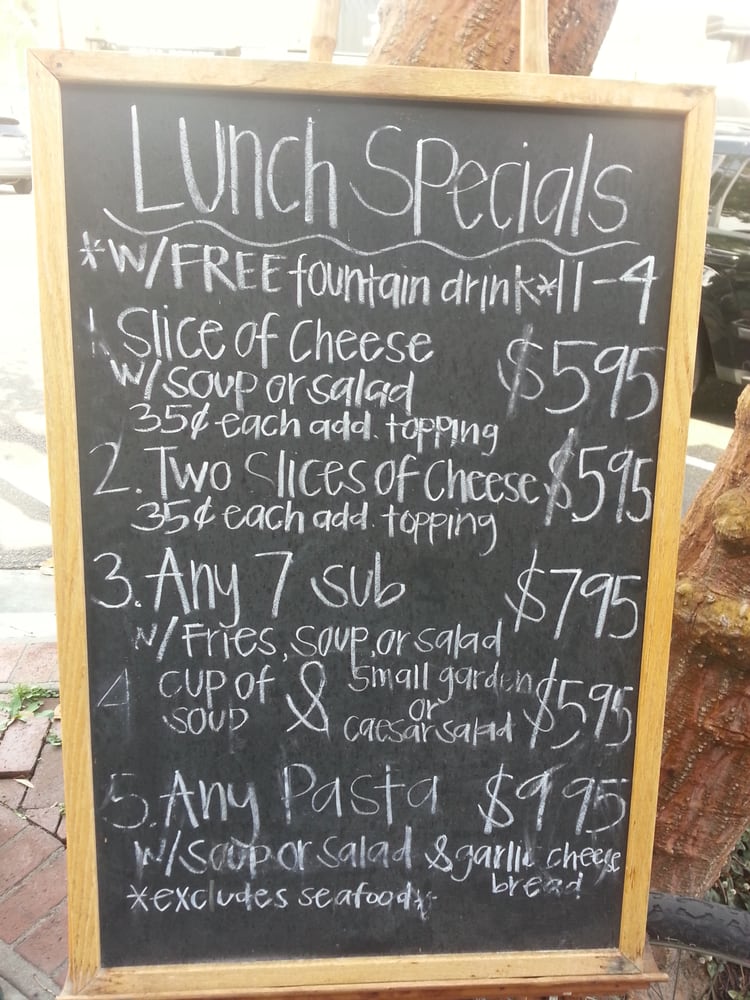 Lunch Specials
*w/FREE fountain drink* 11-4
1. Slice of Cheese $595
w/soup or salad
35¢ each add. topping
2. Two Slices of Cheese $595
35¢ each add. topping
3. Any 7 sub $795
w/Fries, soup, or salad
4 cup of soup & small garden or caesar salad $595
5. Any Pasta $995
w/soup or salad & garlic cheese bread
*excludes seafood*